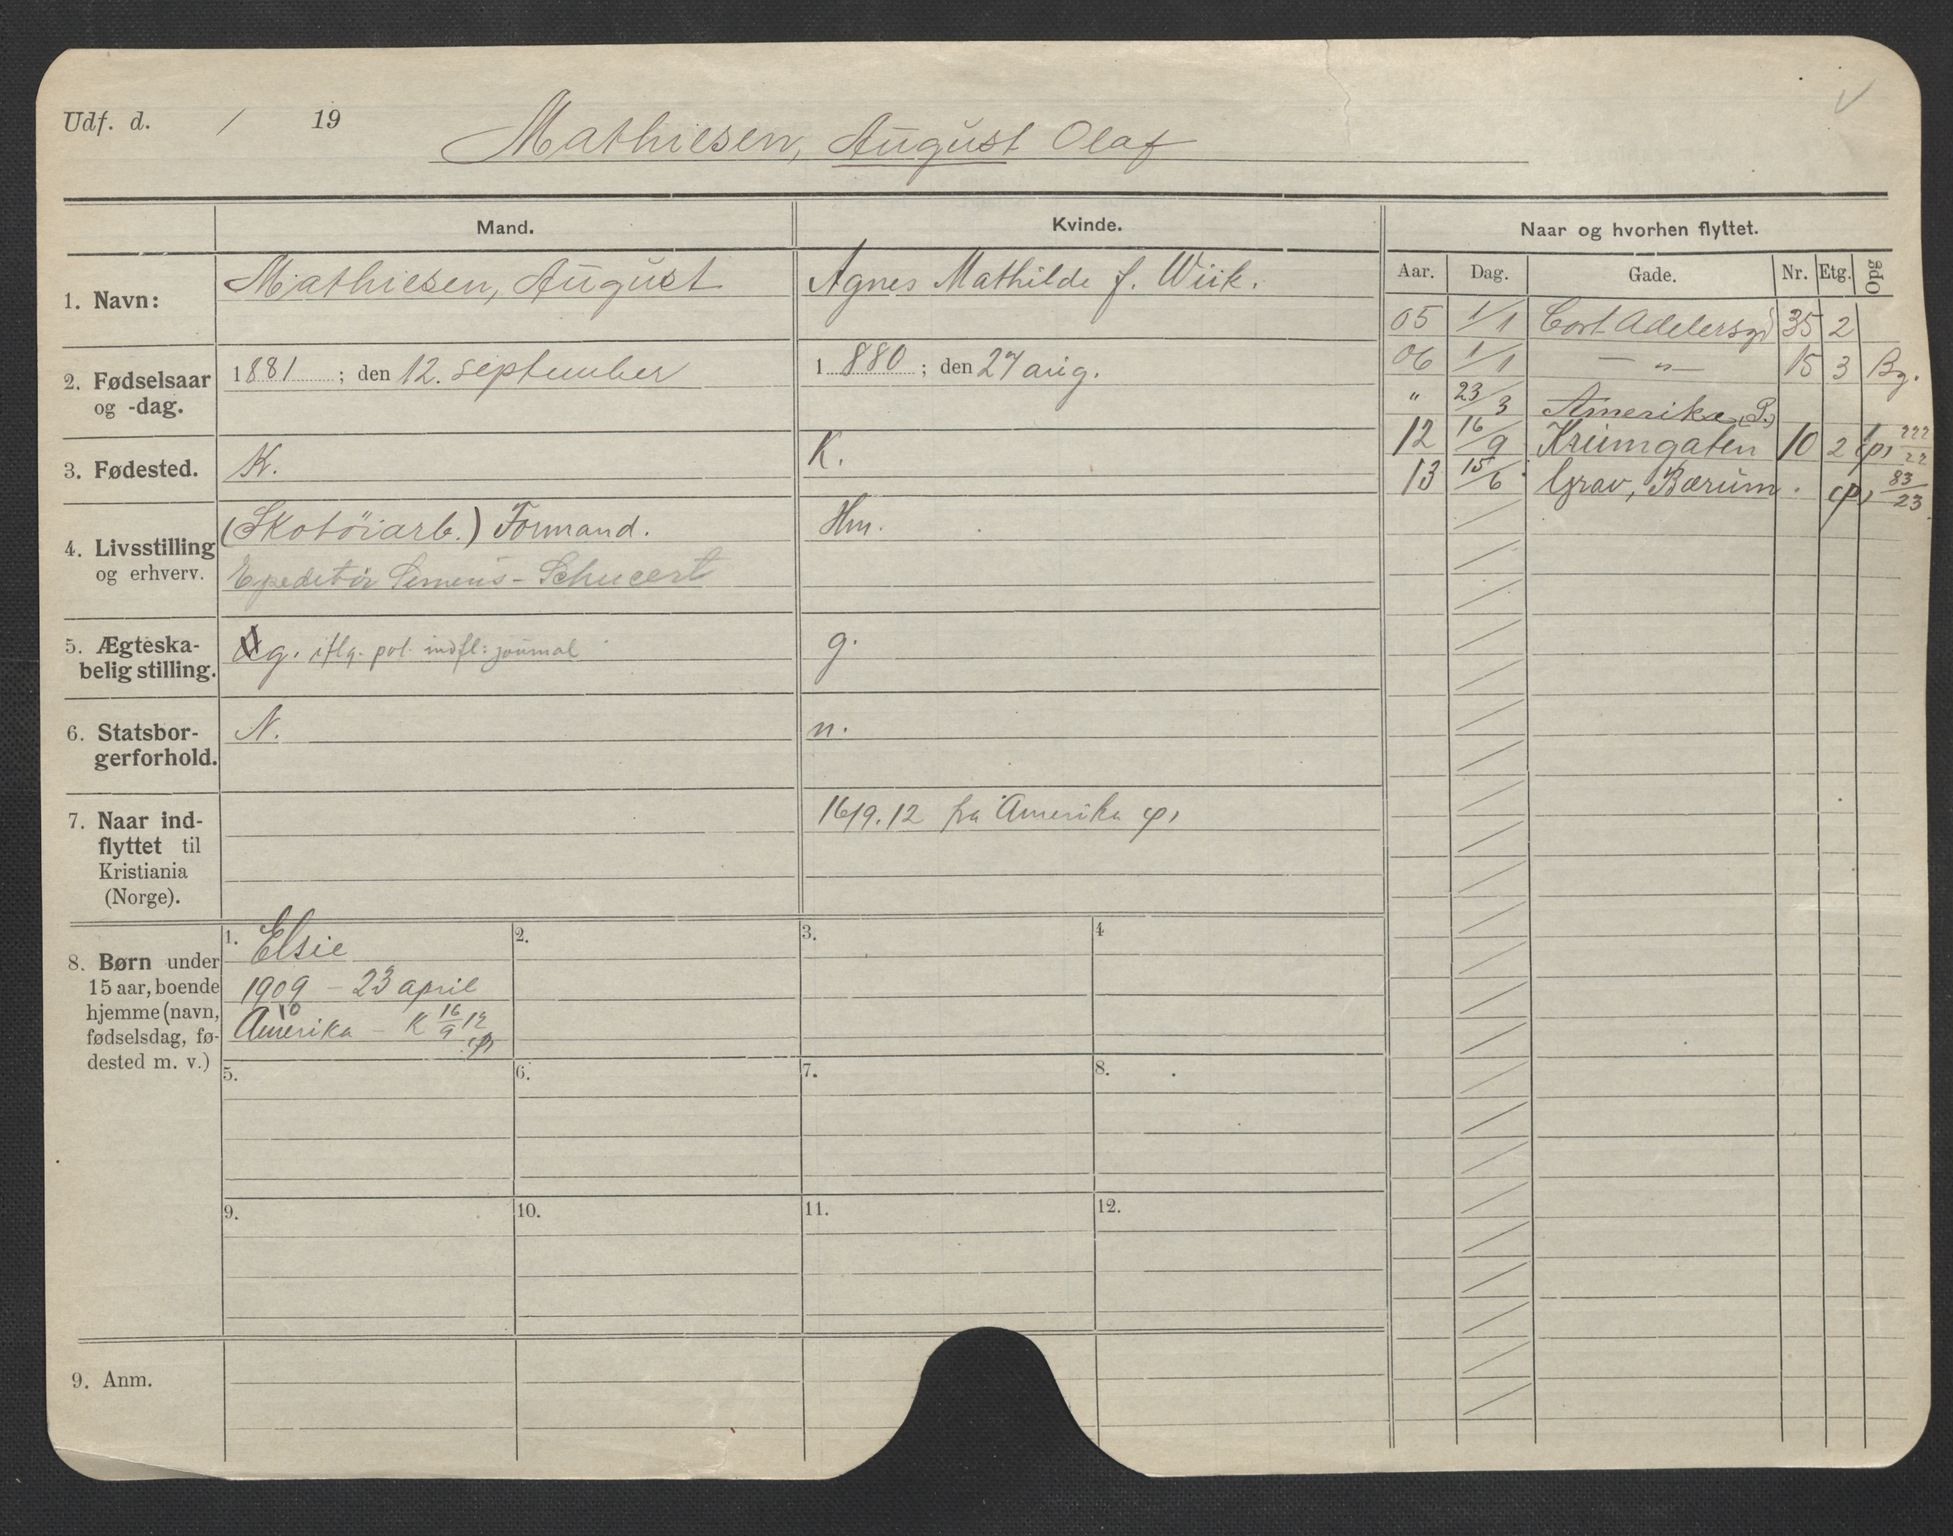 Udf. d. / 19
Mathiesen, August Olaf
Mand.
Kvinde.
Naar og hvorhen flyttet.
Aar. Dag. Gade. Nr. Etg. Opg
1. Navn:
Mathiesen, August
Agnes Mathilde f. Wiik.
05 1/1 Cort Adelersgt 35 2
06 1/1 — " — 15 3 Bg.
" 23/3 Amerika (P.)
12 16/9 Krumgaten 10 2 222/22
13 15/6 Grav, Bærum. 83/23
2. Fødselsaar
og -dag.
1881 ; den 12. september
1880 ; den 27 aug.
3. Fødested.
K.
K.
4. Livsstilling
og erhverv.
(Skotöiarb.) Formand.
Expeditör Semens-Schucert
Hm.
5. Ægteska-
belig stilling.
g. iflg. pol. indfl: journal
g.
6. Statsbor-
gerforhold.
N.
n.
7. Naar ind-
flyttet til
Kristiania
(Norge).
16/9.12 fra Amerika
8. Børn under
15 aar, boende
hjemme (navn,
fødselsdag, fø-
dested m. v.)
1. Elsie
1909 – 23 april
10
Amerika – K 16/9 12
2.
3.
4
5.
6.
7.
8.
9.
10.
11.
12.
9. Anm.